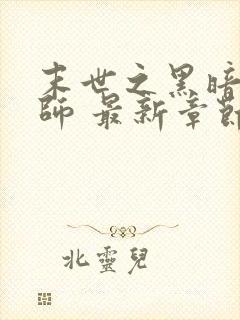 末世之黑暗
师 最新章節
北靈兒